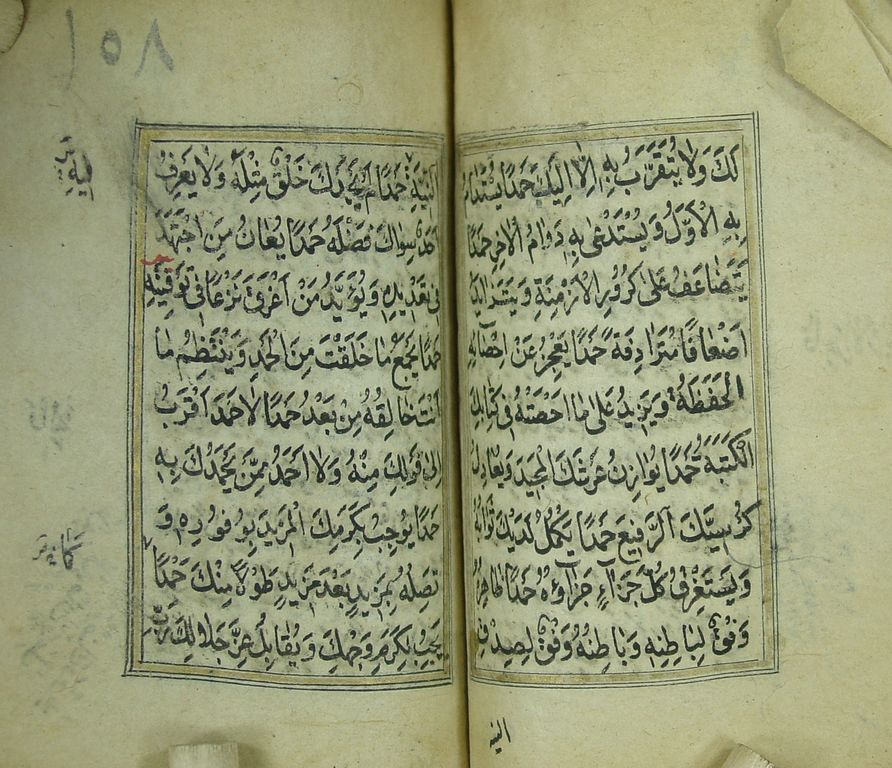 لَكَ وَلَا يُتَقَرَّبُ بِهِ إِلَّا إِلَيْكَ حَمْدًا يُسْتَدَامُ
بِهِ الْأَوَّلُ وَيُسْتَدْعَى بِهِ دَوَامُ الْآخِرِ حَمْدًا
يَتَضَاعَفُ عَلَى كُرُورِ الْأَزْمِنَةِ وَيَتَزَايَدُ
أَضْعَافًا مُتَرَادِفَةً حَمْدًا يَعْجِزُ عَنْ إِحْصَائِهِ
الْحَفَظَةُ وَيَزِيدُ عَلَى مَا أَحْصَتْهُ فِي كِتَابِكَ
الْكَتَبَةُ حَمْدًا يُوَازِنُ عَرْشَكَ الْمَجِيدَ وَيُعَادِلُ
كُرْسِيَّكَ الرَّفِيعَ حَمْدًا يَكْمُلُ لَدَيْكَ ثَوَابُهُ
وَيَسْتَغْرِقُ كُلَّ جَزَاءٍ جَزَاؤُهُ حَمْدًا ظَاهِرُهُ
وَفْقٌ لِبَاطِنِهِ وَبَاطِنُهُ وَفْقٌ لِصِدْقِ
النية
١٥٨
النِّيَّةِ حَمْدًا لَمْ يَحْمَدْكَ خَلْقٌ مِثْلَهُ وَلَا يَعْرِفُ
أَحَدٌ سِوَاكَ فَضْلَهُ حَمْدًا يُعَانُ مَنِ اجْتَهَدَ
فِي تَعْدِيدِهِ وَيُؤَيَّدُ مَنْ أَغْرَقَ نَزْعًا فِي تَوْفِيَتِهِ
حَمْدًا يَجْمَعُ مَا خَلَقْتَ مِنَ الْحَمْدِ وَيَنْتَظِمُ مَا
أَنْتَ خَالِقُهُ مِنْ بَعْدُ حَمْدًا لَا حَمْدَ أَقْرَبُ
إِلَى قَوْلِكَ مِنْهُ وَلَا أَحْمَدُ مِمَّنْ يَحْمَدُكَ بِهِ
حَمْدًا يُوجِبُ بِكَرَمِكَ الْمَزِيدَ بِوُفُورِهِ وَ
تَصِلُهُ بِمَزِيدٍ بَعْدَ مَزِيدٍ طَوْلًا مِنْكَ حَمْدًا
يَجِبُ لِكَرَمِ وَجْهِكَ وَيُقَابِلُ عِزَّ جَلَالِكَ رَبِّ